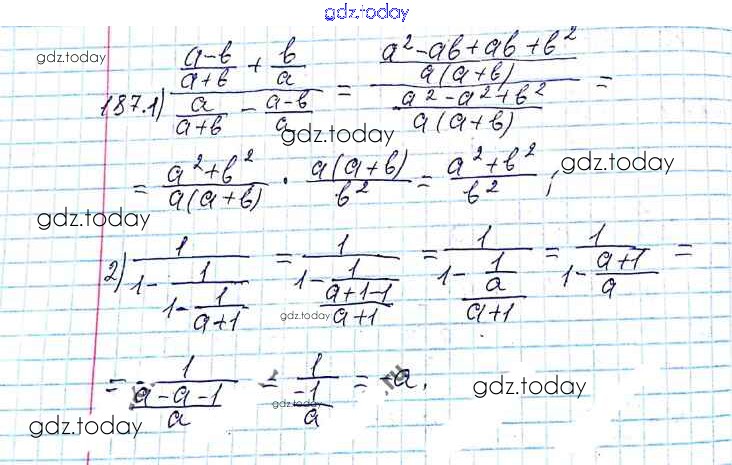 gdz.today
gdz.today
187.1) ((a-b)/(a+b) + b/a)/(a/(a+b) - (a-b)/a) = ((a²-ab+ab+b²)/(a(a+b)))/((a²-a²+b²)/(a(a+b))) =
gdz.today
= (a²+b²)/(a(a+b)) · (a(a+b))/b² = (a²+b²)/b²;
gdz.today
gdz.today
2) 1/(1-1/(1-1/(a+1))) = 1/(1-1/((a+1-1)/(a+1))) = 1/(1-(1/a)/(a+1)) = 1/(1-(a+1)/a) =
gdz.today
= 1/((a-a-1)/a) = 1/(-1/a) = -a.
gdz.today
gdz.today
gdz.today